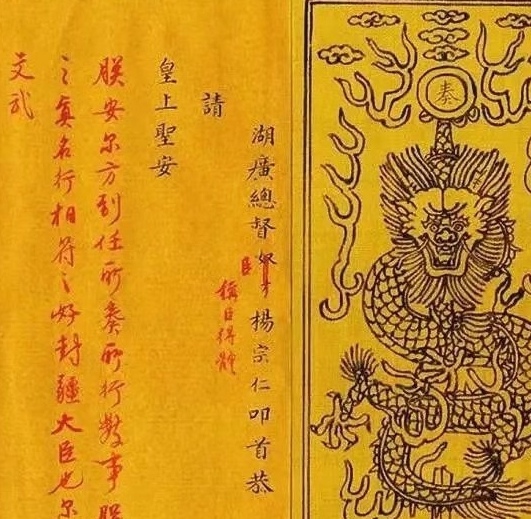 奏
湖廣總督奴才楊宗仁叩首恭
臣
稱臣得體
請
皇上聖安
朕安尔方到任所奏所行數事朕
之真名行相符之好封疆大臣也尔
文武